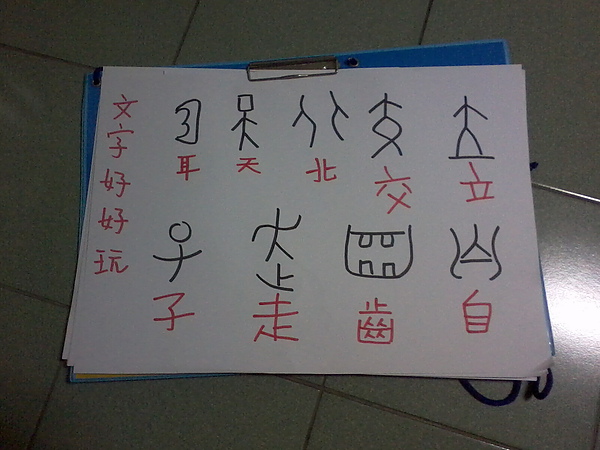 文字好好玩
耳 天 北 交 立
子 走 齒 自